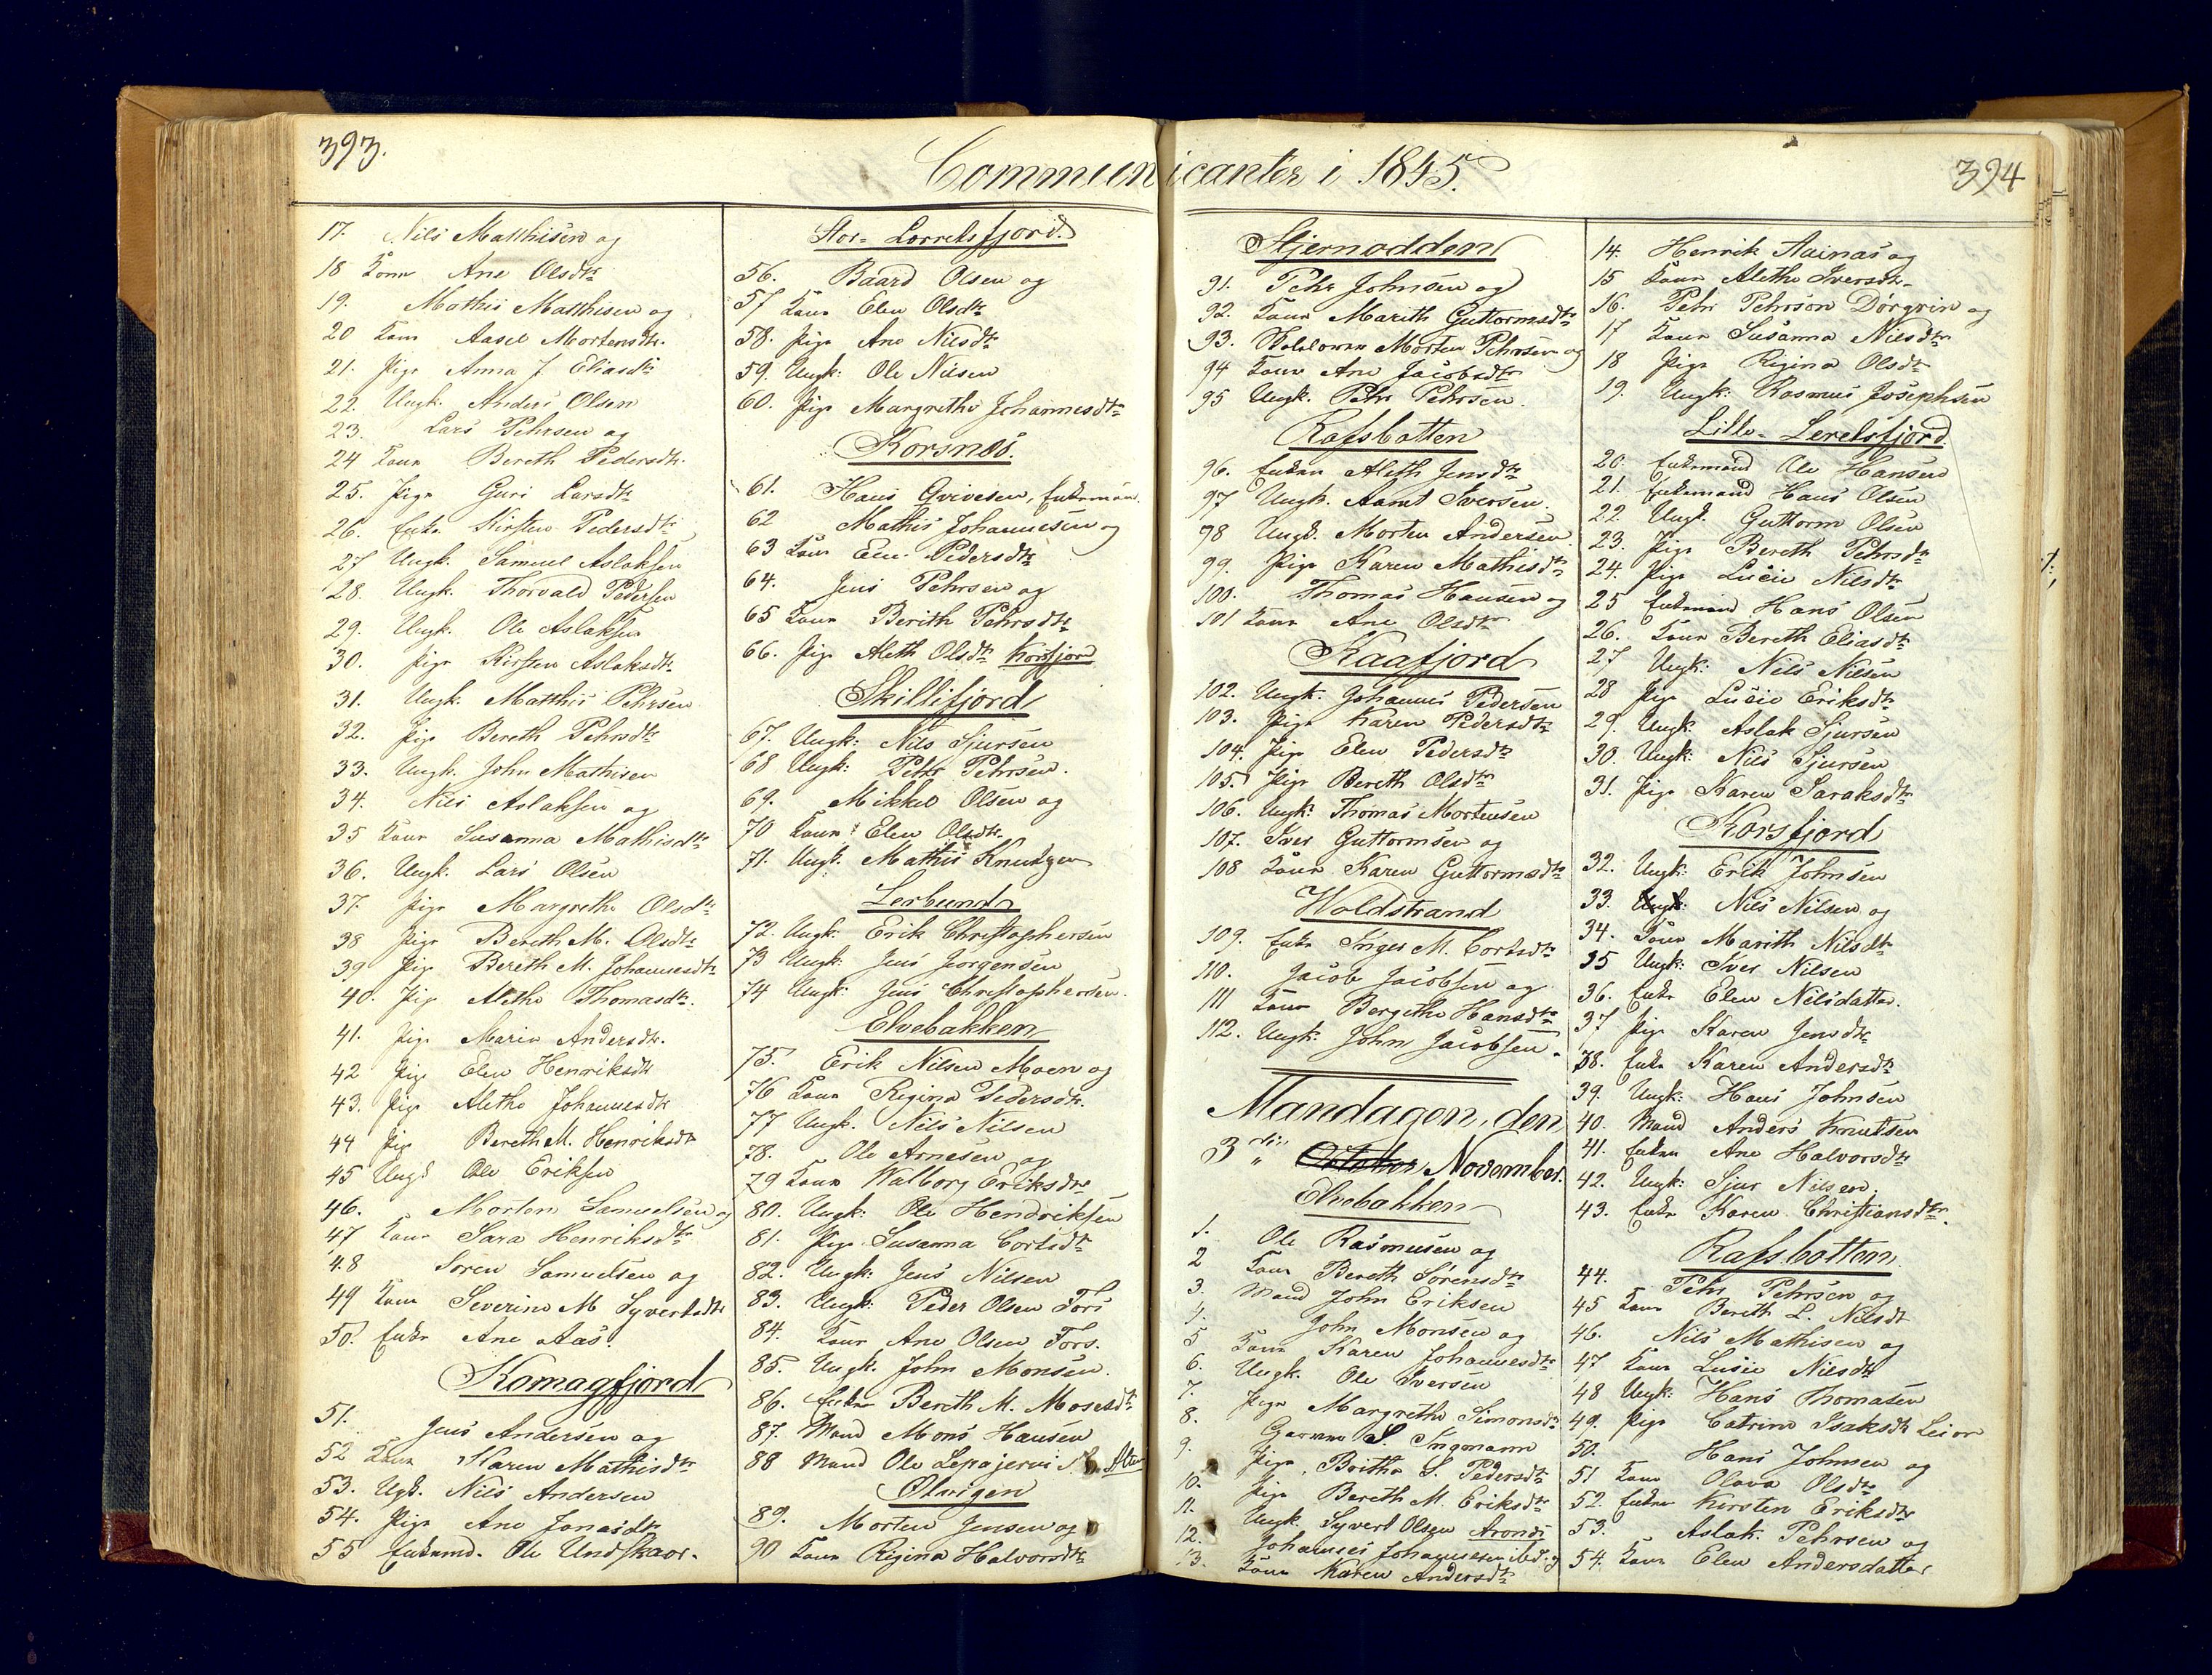 393.
Communicanter i 1845.
394
17. Nils Matthisen og
18 Kone Ane Olsdtr
19. Mathis Matthisen og
20 Kone Aasel Mortensdtr.
21. Pige Anna J Eliasdtr
22. Ungk. Anders Olsen
23. Lars Pehrsen og
24 Kone Bereth Pedersdtr.
25. Pige Guri Larsdtr
26. Enke Kirsten Pedersdtr
27 Ungk. Samuel Aslaksen
28. Ungk. Thorvald Pedersen
29. Ungk. Ole Aslaksen
30. Pige Kirsten Aslaksdtr.
31. Ungk. Matthis Pehrsen
32. Pige Bereth Pehrsdtr
33. Ungk. John Mathisen
34. Nils Aslaksen og
35 Kone Susanna Mathisdtr
36. Ungk. Lars Olsen
37. Pige Margrethe Olsdtr
38 Pige Bereth M. Olsdtr
39 Pige Bereth M. Johannesdtr
40. Pige Alethe Thomasdtr.
41. Pige Maria Andersdtr.
42 Pige Elen Henriksdtr
43. Pige Alethe Johannesdtr
44 Pige Bereth M. Henriksdtr
45 Ungk Ole Eriksen
46. Morten Samuelsen og
47 Kone Sara Henriksdtr
48 Søren Samuelsen og
49 Kone Severine M Syvertsdtr
50. Enke Ane Aas.
Komagfjord
51. Jens Andersen og
52 Kone Karen Mathisdtr
53. Ugk. Nils Andersen
54. Pige Ane Jonasdtr
55 Enkemd. Ole Undskaar.
Stor-Lerretsfjord.
56. Baard Olsen og
57 Kone Elen Olsdtr
58. Pige Ane Nilsdtr
59. Ungk: Ole Nilsen
60. Pige Margrethe Johannesdtr
Korsnes.
61. Hans Enkeman
62 Mathis Johannesen og
63 Kone Ell. Pedersdtr
64. Jens Pehrsen og
65 Kone Berith Pehrsdtr
66. Pige Aleth Olsdtr Korsfjord
Skillifjord
67. Ungk: Nils Sjursen
68 Ungk: Pehr Pehrsen.
69. Mikkel Olsen og
70 Kone Elen Olsdtr.
71. Ungk. Mathis Knudsen
Lerbund
72. Ungk: Erik Christophersen
73 Ungk: Jens Jørgensen
74 Ungk: Jens Christophersen.
Elvebakken
75. Erik Nilsen Moen og
76 Kone Regina Pedersdtr.
77 Ungk. Nils Nilsen
78. Ole Arnesen og
79 Kone Walborg Eriksdtr
80. Ungk: Ole Hendriksen
81. Pige Susanna Cortsdtr
82. Ungk: Jens Nilsen
83. Ungk: Peder Olsen Fors
84. Kone Ane Olsen Fors.
85. Ungk. John Monsen
86. Enke Bereth M. Mosesdtr
87. Mand Mons Hansen
88 Mand Ole Lepajervi Alten
Ølvigen
89. Morten Jensen og
90 Kone Regina Halvorsdtr
Stjernodden
91. Pehr Johnsen og
92. Kone Marith Guttormsdtr
93. Morten Pehrsen og
94 Kone Ane Jacobsdtr
95 Ungk. Pehr Pehrsen.
Rafsbotten
96. Enken Aleth Jensdtr
97 Ungk. Aamt Iversen.
98 Ungk. Morten Andersen
99. Pige Karen Mathisdtr
100. Thomas Hansen og
101 Kone Ane Olsdtr
Kaafjord
102. Ungk. Johannes Pedersen
103. Pige Karen Pedersdtr
104. Pige Elen Pedersdtr
105. Pige Bereth Olsdtr
106. Ungk: Thomas Mortensen
107. Iver Guttormsen og
108 Kone Karen Guttormsdtr
Woldstrand
109. Enke Inger M. Cortsdtr
110. Jacob Jacobsen og
111 Kone Bergithe Hansdtr
112. Ungk: John Jacobsen.
Mandagen, den
3die October November.
Elvebakken
1. Ole Rasmusen og
2 Kone Bereth Sørensdtr
3. Mand John Eriksen
4. John Monsen og
5 Kone Karen Johannesdtr
6. Ungk. Ole Iversen
7. Pige Margrethe Simonsdtr
8. S. Ingmann
9. Pige Britha S. Pedersdtr
10. Pige Bereth M. Eriksdtr
11. Ungk Syvert Olsen Aronæs
12. Johannes Johannesen og
13. Kone Karen Andersdtr
14. Henrik Aainas og
15 Kone Alethe Iversdtr
16. Pehr Pehrson Dørgrin og
17 Kone Susanna Nilsdtr
18 Pige Regina Olsdtr
19. Ungk: Rasmus Josephsen
Lille-Leretsfjord.
20. Enkemand Ole Hansen
21. Enkemand Hans Olsen
22 Ungk. Guttorm Olsen
23. Pige Bereth Pehrsdtr
24. Pige Lucie Nilsdtr
25 Enkemand Hans Olsen
26. Kone Bereth Eliasdtr
27 Ungk: Nils Nilsen
28 Pige Lucie Eriksdtr
29. Ungk: Aslak Sjursen
30. Ungk: Nils Sjursen
31. Pige Karen Saraksdtr
Korsfjord
32. Ungk: Erik Johnsen
33. Ungk: Nils Nilsen og
34. Kone Marith Nilsdtr
35 Ungk: Iver Nilsen
36. Enke Elen Nilsdatter.
37 Pige Karen Jensdtr
38. Enke Karen Andersdtr
39. Ungk: Hans Johnsen
40. Mand Anders Knutsen
41. Enken Ane Halvorsdtr
42. Ungk: Sjur Nilsen.
43. Enke Karen Christiansdtr.
Rafsbotten
44. Pehr Pehrsen og
45 Kone Berith L. Nilsdtr
46. Nils Mathisen og
47 Kone Lucie Nilsdtr
48 Ungk: Hans Thomasen
49. Pige Catrine Isaksdtr
50. Hans Johnsen og
51 Kone Olava Olsdtr
52. Enke Kirsten Eriksdtr
53. Aslak Pehrsen og
54. Kone Elen Andersdatter